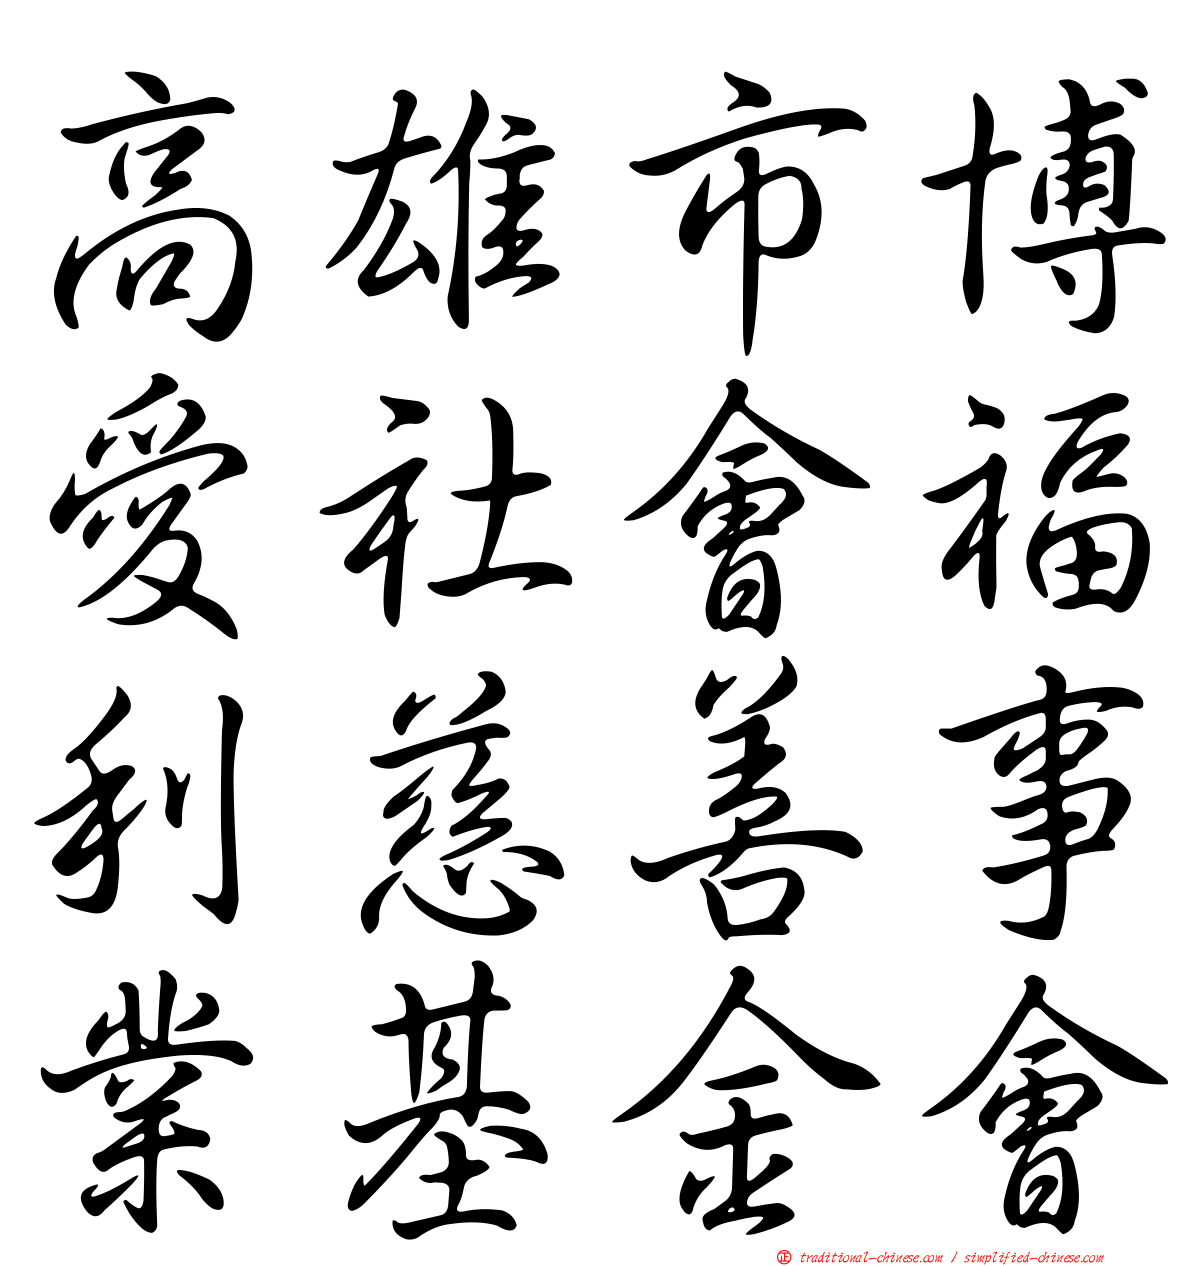 高雄市博
愛社會福
利慈善事
業基金會
正 traditional-chinese.com / simplified-chinese.com